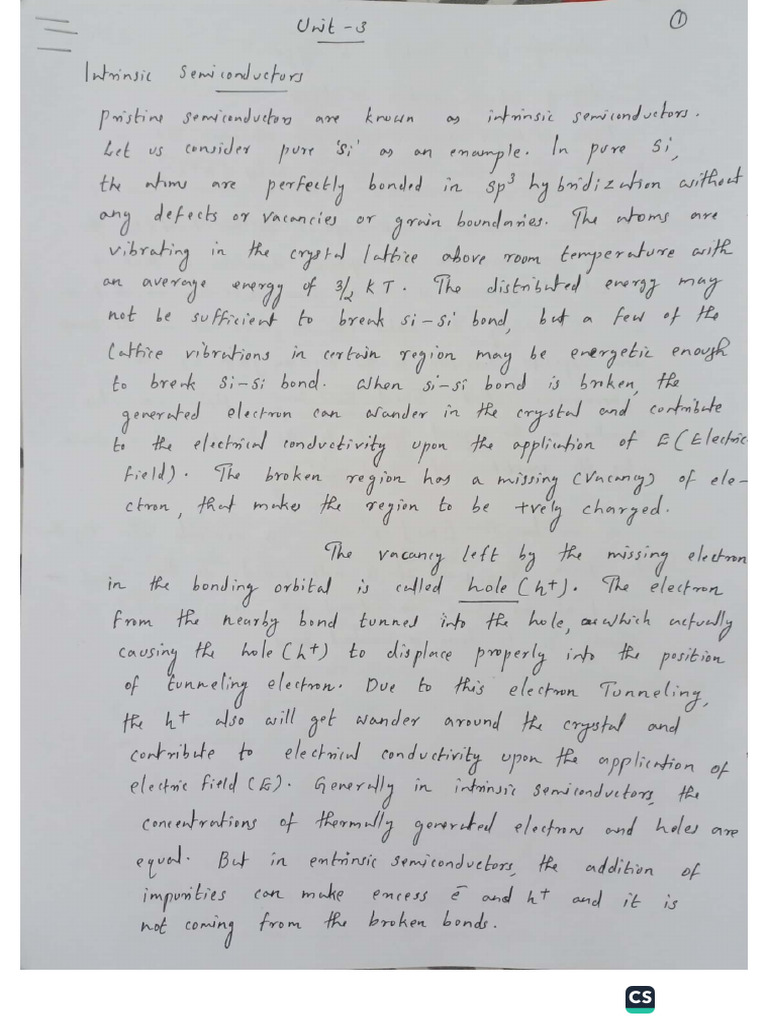 Unit - 3
①
Intrinsic Semiconductors
Pristine semiconductors are known as intrinsic semiconductors.
Let us consider pure 'Si' as an example. In pure Si,
the atoms are perfectly bonded in sp³ hybridization without
any defects or vacancies or grain boundaries. The atoms are
vibrating in the crystal lattice above room temperature with
an average energy of 3/2 KT. The distributed energy may
not be sufficient to break Si-Si bond, but a few of the
lattice vibrations in certain region may be energetic enough
to break Si-Si bond. When Si-Si bond is broken, the
generated electron can wander in the crystal and contribute
to the electrical conductivity upon the application of E (Electric
field). The broken region has a missing (vacancy) of ele-
ctron, that makes the region to be +vely charged.
The vacancy left by the missing electron
in the bonding orbital is called hole (h⁺). The electron
from the nearby bond tunnel into the hole, which actually
causing the hole (h⁺) to displace properly into the position
of tunneling electron. Due to this electron Tunneling,
the h⁺ also will get wander around the crystal and
contribute to electrical conductivity upon the application of
electric field (E). Generally in intrinsic semiconductors, the
concentrations of thermally generated electrons and holes are
equal. But in extrinsic semiconductors, the addition of
impurities can make excess e⁻ and h⁺ and it is
not coming from the broken bonds.
CS